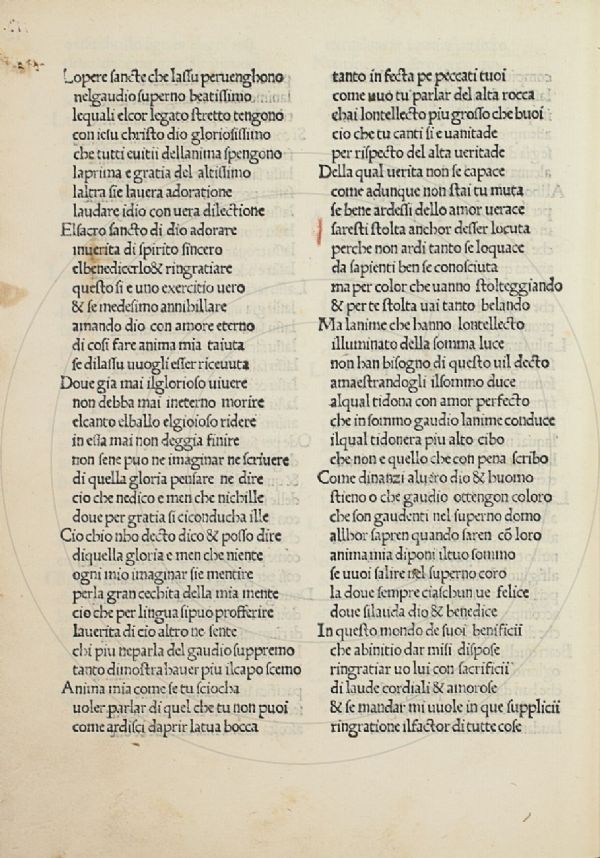 Lopere sancte che lassu peruenghono
nelgaudio superno beatissimo
lequali elcor legato stretto tengono
con iesu christo dio gloriosissimo
che tutti euitii dellanima spengono
laprima e gratia del altissimo
laltra sie lauera adoratione
laudare idio con uera dilectione
Elsacro sancto di dio adorare
inuerita di spirito sincero
elbenedicerlo & ringratiare
questo si e uno exercitio uero
& se medesimo annihillare
amando dio con amore eterno
di cosi fare anima mia taiuta
se dilassu uuogli esser riceuuta
Doue gia mai ilglorioso uiuere
non debba mai ineterno morire
elcanto elballo elgioioso ridere
in essa mai non deggia finire
non sene puo ne imaginar ne scriuere
di quella gloria pensare ne dire
cio che nedico e men che nichille
doue per gratia si ciconducha ille
Cio chio nho decto dico & posso dire
diquella gloria e men che niente
ogni mio imaginar sie mentire
perla gran cechita della mia mente
cio che per lingua sipuo profferire
lauerita di cio altro ne sente
chi piu neparla del gaudio suppremo
tanto dimostra hauer piu ilcapo scemo
Anima mia come se tu sciocha
uoler parlar di quel che tu non puoi
come ardisci daprir latua bocca
tanto infecta pe peccati tuoi
come uuo tu parlar del alta rocca
ehai lontellecto piu grosso che buoi
cio che tu canti si e uanitade
per rispecto del alta ueritade
Della qual uerita non se capace
come adunque non stai tu muta
se bene ardessi dello amor uerace
saresti stolta anchor desser locuta
perche non ardi tanto se loquace
da sapienti ben se conosciuta
ma per color che uanno stolteggiando
& per te stolta uai tanto belando
Ma lanime che hanno lontellecto
illuminato della somma luce
non han bisogno di questo uil decto
amaestrandogli ilsommo duce
alqual tidona con amor perfecto
che in sommo gaudio lanime conduce
ilqual tidonera piu alto cibo
che non e quello che con pena scribo
Come dinanzi aluero dio & huomo
stieno o che gaudio ottengon coloro
che son gaudenti nel superno domo
allhor sapren quando saren cō loro
anima mia diponi iltuo sommo
se uuoi salire nel superno coro
la doue sempre ciaschun ue felice
doue silauda dio & benedice
In questo mondo de suoi benificii
che abinitio dar misi dispose
ringratiar uo lui con sacrificii
di laude cordiali & amorose
& se mandar mi uuole in que supplicii
ringratione ilfactor di tutte cose